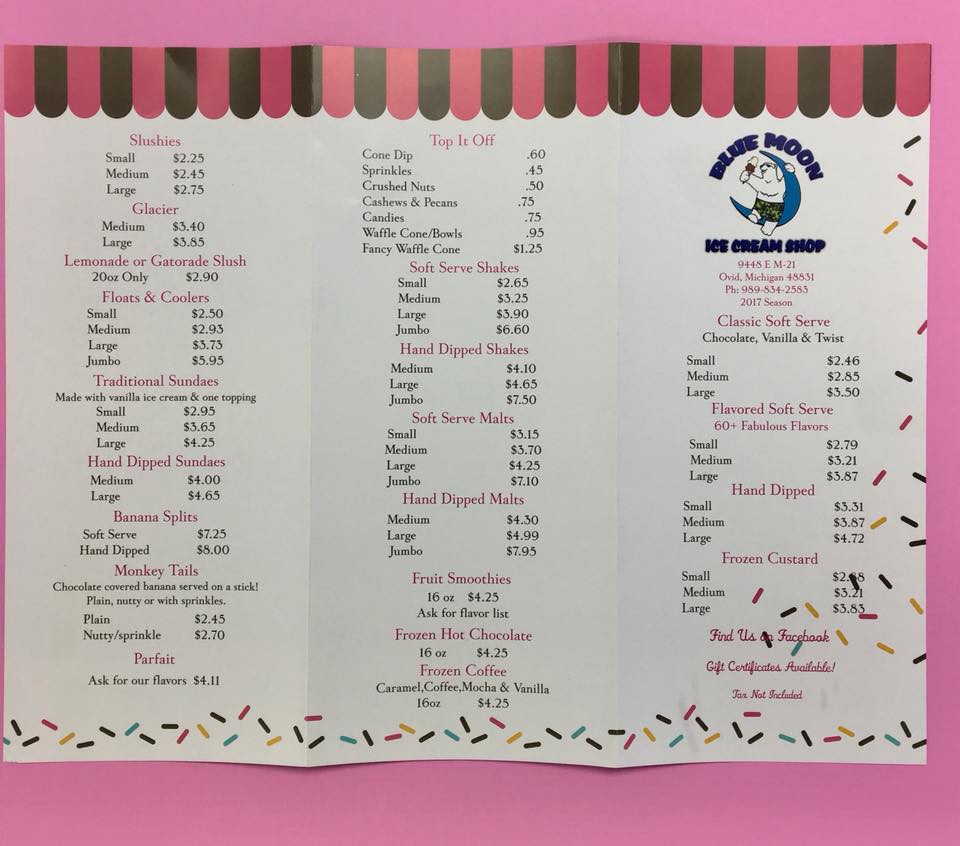 Slushies
Small $2.25
Medium $2.45
Large $2.75
Glacier
Medium $3.40
Large $3.85
Lemonade or Gatorade Slush
20oz Only $2.90
Floats & Coolers
Small $2.50
Medium $2.93
Large $3.73
Jumbo $5.95
Traditional Sundaes
Made with vanilla ice cream & one topping
Small $2.95
Medium $3.65
Large $4.25
Hand Dipped Sundaes
Medium $4.00
Large $4.65
Banana Splits
Soft Serve $7.25
Hand Dipped $8.00
Monkey Tails
Chocolate covered banana served on a stick!
Plain, nutty or with sprinkles.
Plain $2.45
Nutty/sprinkle $2.70
Parfait
Ask for our flavors $4.11
Top It Off
Cone Dip .60
Sprinkles .45
Crushed Nuts .50
Cashews & Pecans .75
Candies .75
Waffle Cone/Bowls .95
Fancy Waffle Cone $1.25
Soft Serve Shakes
Small $2.65
Medium $3.25
Large $3.90
Jumbo $6.60
Hand Dipped Shakes
Medium $4.10
Large $4.65
Jumbo $7.50
Soft Serve Malts
Small $3.15
Medium $3.70
Large $4.25
Jumbo $7.10
Hand Dipped Malts
Medium $4.30
Large $4.99
Jumbo $7.95
Fruit Smoothies
16 oz $4.25
Ask for flavor list
Frozen Hot Chocolate
16 oz $4.25
Frozen Coffee
Caramel,Coffee,Mocha & Vanilla
16oz $4.25
BLUE MOON
ICE CREAM SHOP
9448 E M-21
Ovid, Michigan 48831
Ph: 989-834-2583
2017 Season
Classic Soft Serve
Chocolate, Vanilla & Twist
Small $2.46
Medium $2.85
Large $3.50
Flavored Soft Serve
60+ Fabulous Flavors
Small $2.79
Medium $3.21
Large $3.87
Hand Dipped
Small $3.31
Medium $3.87
Large $4.72
Frozen Custard
Small
Medium $3.21
Large $3.83
Find Us on Facebook
Gift Certificates Available!
Tax Not Included